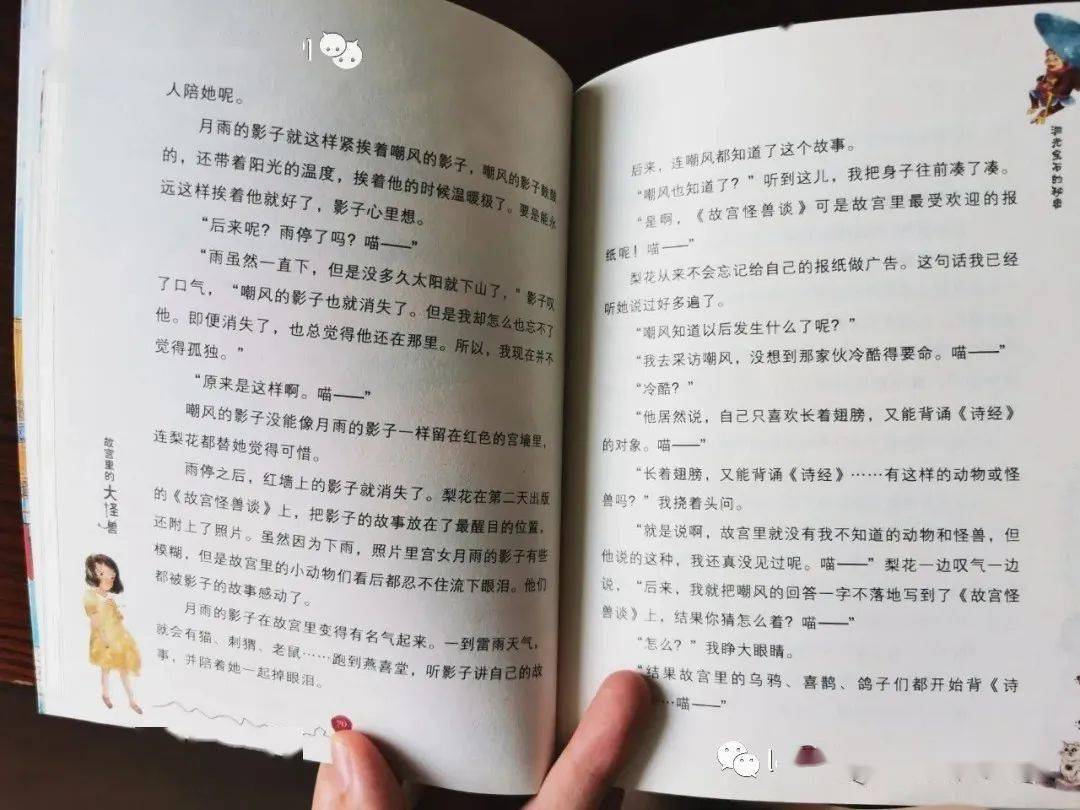 人陪她呢。
月雨的影子就这样紧挨着嘲风的影子，嘲风的影子毅毅
的，还带着阳光的温度，挨着他的时候温暖极了。要是能永
远这样挨着他就好了，影子心里想。
“后来呢？雨停了吗？喵——”
“雨虽然一直下，但是没多久太阳就下山了，”影子叹
了口气，“嘲风的影子也就消失了。但是我却怎么也忘不了
他。即便消失了，也总觉得他还在那里。所以，我现在并不
觉得孤独。”
“原来是这样啊。喵——”
嘲风的影子没能像月雨的影子一样留在红色的宫墙里，
连梨花都替她觉得可惜。
雨停之后，红墙上的影子就消失了。梨花在第二天出版
的《故宫怪兽谈》上，把影子的故事放在了最醒目的位置，
还附上了照片。虽然因为下雨，照片里宫女月雨的影子有些
模糊，但是故宫里的小动物们看后都忍不住流下眼泪。他们
都被影子的故事感动了。
月雨的影子在故宫里变得有名气起来。一到雷雨天气，
就会有猫、刺猬、老鼠……跑到燕喜堂，听影子讲自己的故
事，并陪着她一起掉眼泪。
故宫里的大怪兽
70
后来，连嘲风都知道了这个故事。
“嘲风也知道了？”听到这儿，我把身子往前凑了凑。
“是啊，《故宫怪兽谈》可是故宫里最受欢迎的报
纸呢！喵——”
梨花从来不会忘记给自己的报纸做广告。这句话我已经
听她说过好多遍了。
“嘲风知道以后发生什么了呢？”
“我去采访嘲风，没想到那家伙冷酷得要命。喵——”
“冷酷？”
“他居然说，自己只喜欢长着翅膀，又能背诵《诗经》
的对象。喵——”
“长着翅膀，又能背诵《诗经》……有这样的动物或怪
兽吗？”我挠着头问。
“就是说啊，故宫里就没有我不知道的动物和怪兽，但
他说的这种，我还真没见过呢。喵——”梨花一边叹气一边
说，“后来，我就把嘲风的回答一字不落地写到了《故宫怪
兽谈》上，结果你猜怎么着？喵——”
“怎么？”我睁大眼睛。
“结果故宫里的乌鸦、喜鹊、鸽子们都开始背《诗
…喵——”